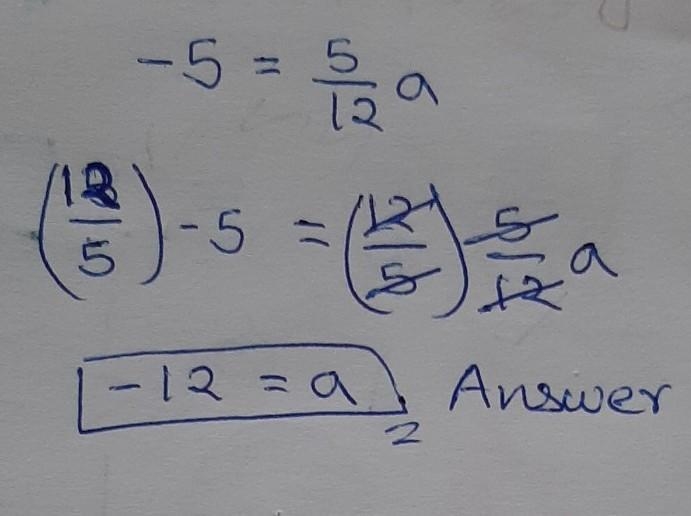 -5 = 5/12 a
(12/5) -5 = (12/5) 5/12 a
-12 = a, Answer
2